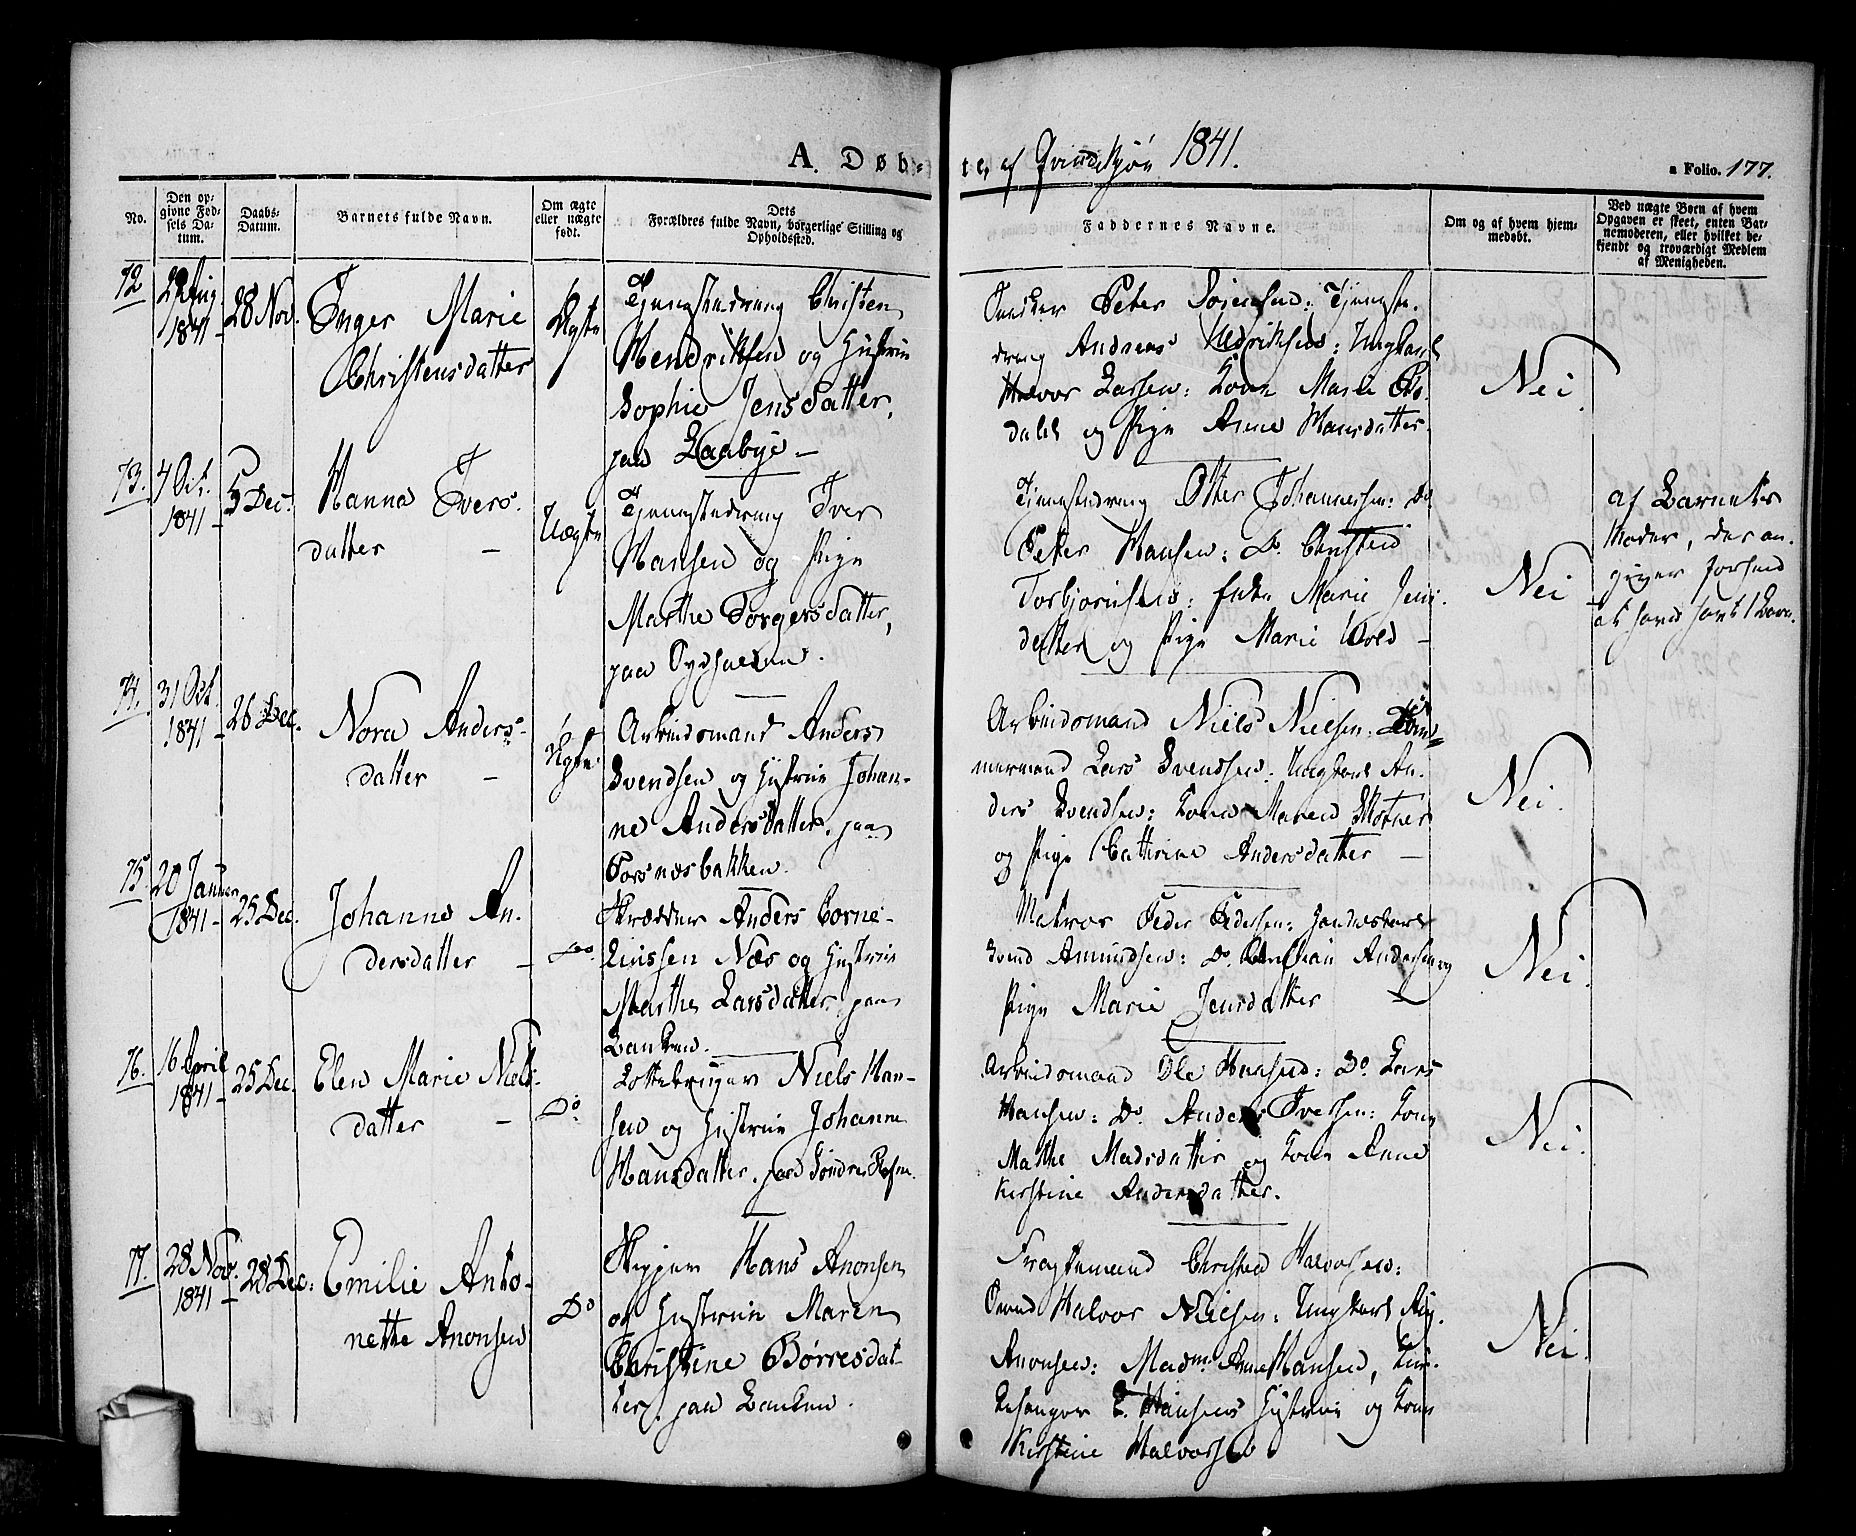 A. Døb-
te, af Qvindekjøn 1841.
a Folio. 177.
No.
Den op-
givne Fød-
sels Da-
tum.
Daabs-
Datum.
Barnets fulde Navn.
Om ægte
eller uægte
født.
Dets
Forældres fulde Navn, borgerlige Stilling og
Opholdssted.
Faddernes Navne.
Om og af hvem hjem-
medøbt.
Ved uægte Børn af hvem
Opgaven er skeet, enten Bar-
nemoderen, eller hvilket be-
kjendt og troværdigt Medlem
af Menigheden.
72
Aug
1841
28 Nov.
Inger Marie
Christensdatter
Ægte
Tjenestedreng Christen
Hendriksen og Hustrue
Sophie Jensdatter,
paa Laabye
Peter Sørensen: Tjeneste-
dreng Andreas Hedriksen: Ungkarl
Halvor Larsen: Kone Marie
og Pige Anne Hansdatter.
Nei.
73.
4 Oct.
1841
5 Dec.
Hanna Ivers-
datter
Uægte
Tjenestedreng Iver
Hansen og Pige
Marthe Torgersdatter,
paa
Tjenestedreng Otter Johannesen: Do
Peter Hansen: Do. Christen
Torbjørnsen: Marie Jens-
datter og Pige Marie
Nei
af Barnets
Moder, der an-
giver
74.
31 Oct.
1841
26 Dec.
Nora Anders-
datter
Ægte.
Arbeidsmand Anders
Svendsen og Hustrue Johan-
ne Andersdatter, paa
Porsnæsbakken.
Arbeidsmand Niels Nielsen: Tøm-
mermand Lars Svendsen: Ungkarl An-
ders Svendsen: Kone Maren
og Pige Cathrine Andersdatter
Nei.
75.
20 Januar
1841
25 Dec.
Johanne An-
dersdatter
Do.
Skrædder Anders Corne-
liussen Næs og Hustrue
Marthe Larsdatter, paa
Banken.
Matros Peder Pedersen:
Svend Amundsen: Do. Christian Andersen og
Pige Marie Jensdatter
Nei.
76.
16 April
1841
25 Dec.
Elen Marie Niels-
datter
Do
Niels Han-
sen og Hustrue Johanne
Hansdatter, paa Søndre
Arbeidsmand Ole Hansen: Do. Lars
Hansen: Do. Anders Iversen: Kone
Mathe Madsdatter og Kone Anne
Kirstine Andersdatter.
Nei.
77.
28 Nov.
1841
28 Dec:
Emilie Anto-
nette Anonsen
Do
Skipper Hans Anonsen
og Hustrue Maren
Christine Børresdat-
ter, paa Banken.
Fragtemand Christen Halvorsen:
Svend Halvor Nielsen: Ungkarl
Anonsen: Madm. Anne Hansen,
E. Hansens Hustrue og Kone
Kirstine Halvorsen
Nei.